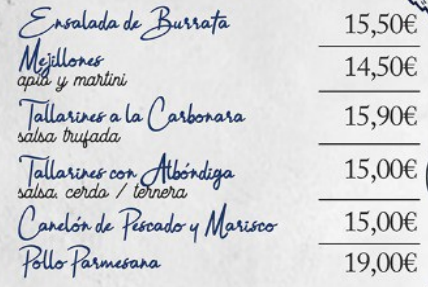 Ensalada de Burrata 15,50€
Mejillones 14,50€
apio y martini
Tallarines a la Carbonara 15,90€
salsa trufada
Tallarines con Albóndiga 15,00€
salsa, cerdo / ternera
Canelón de Pescado y Marisco 15,00€
Pollo Parmesana 19,00€